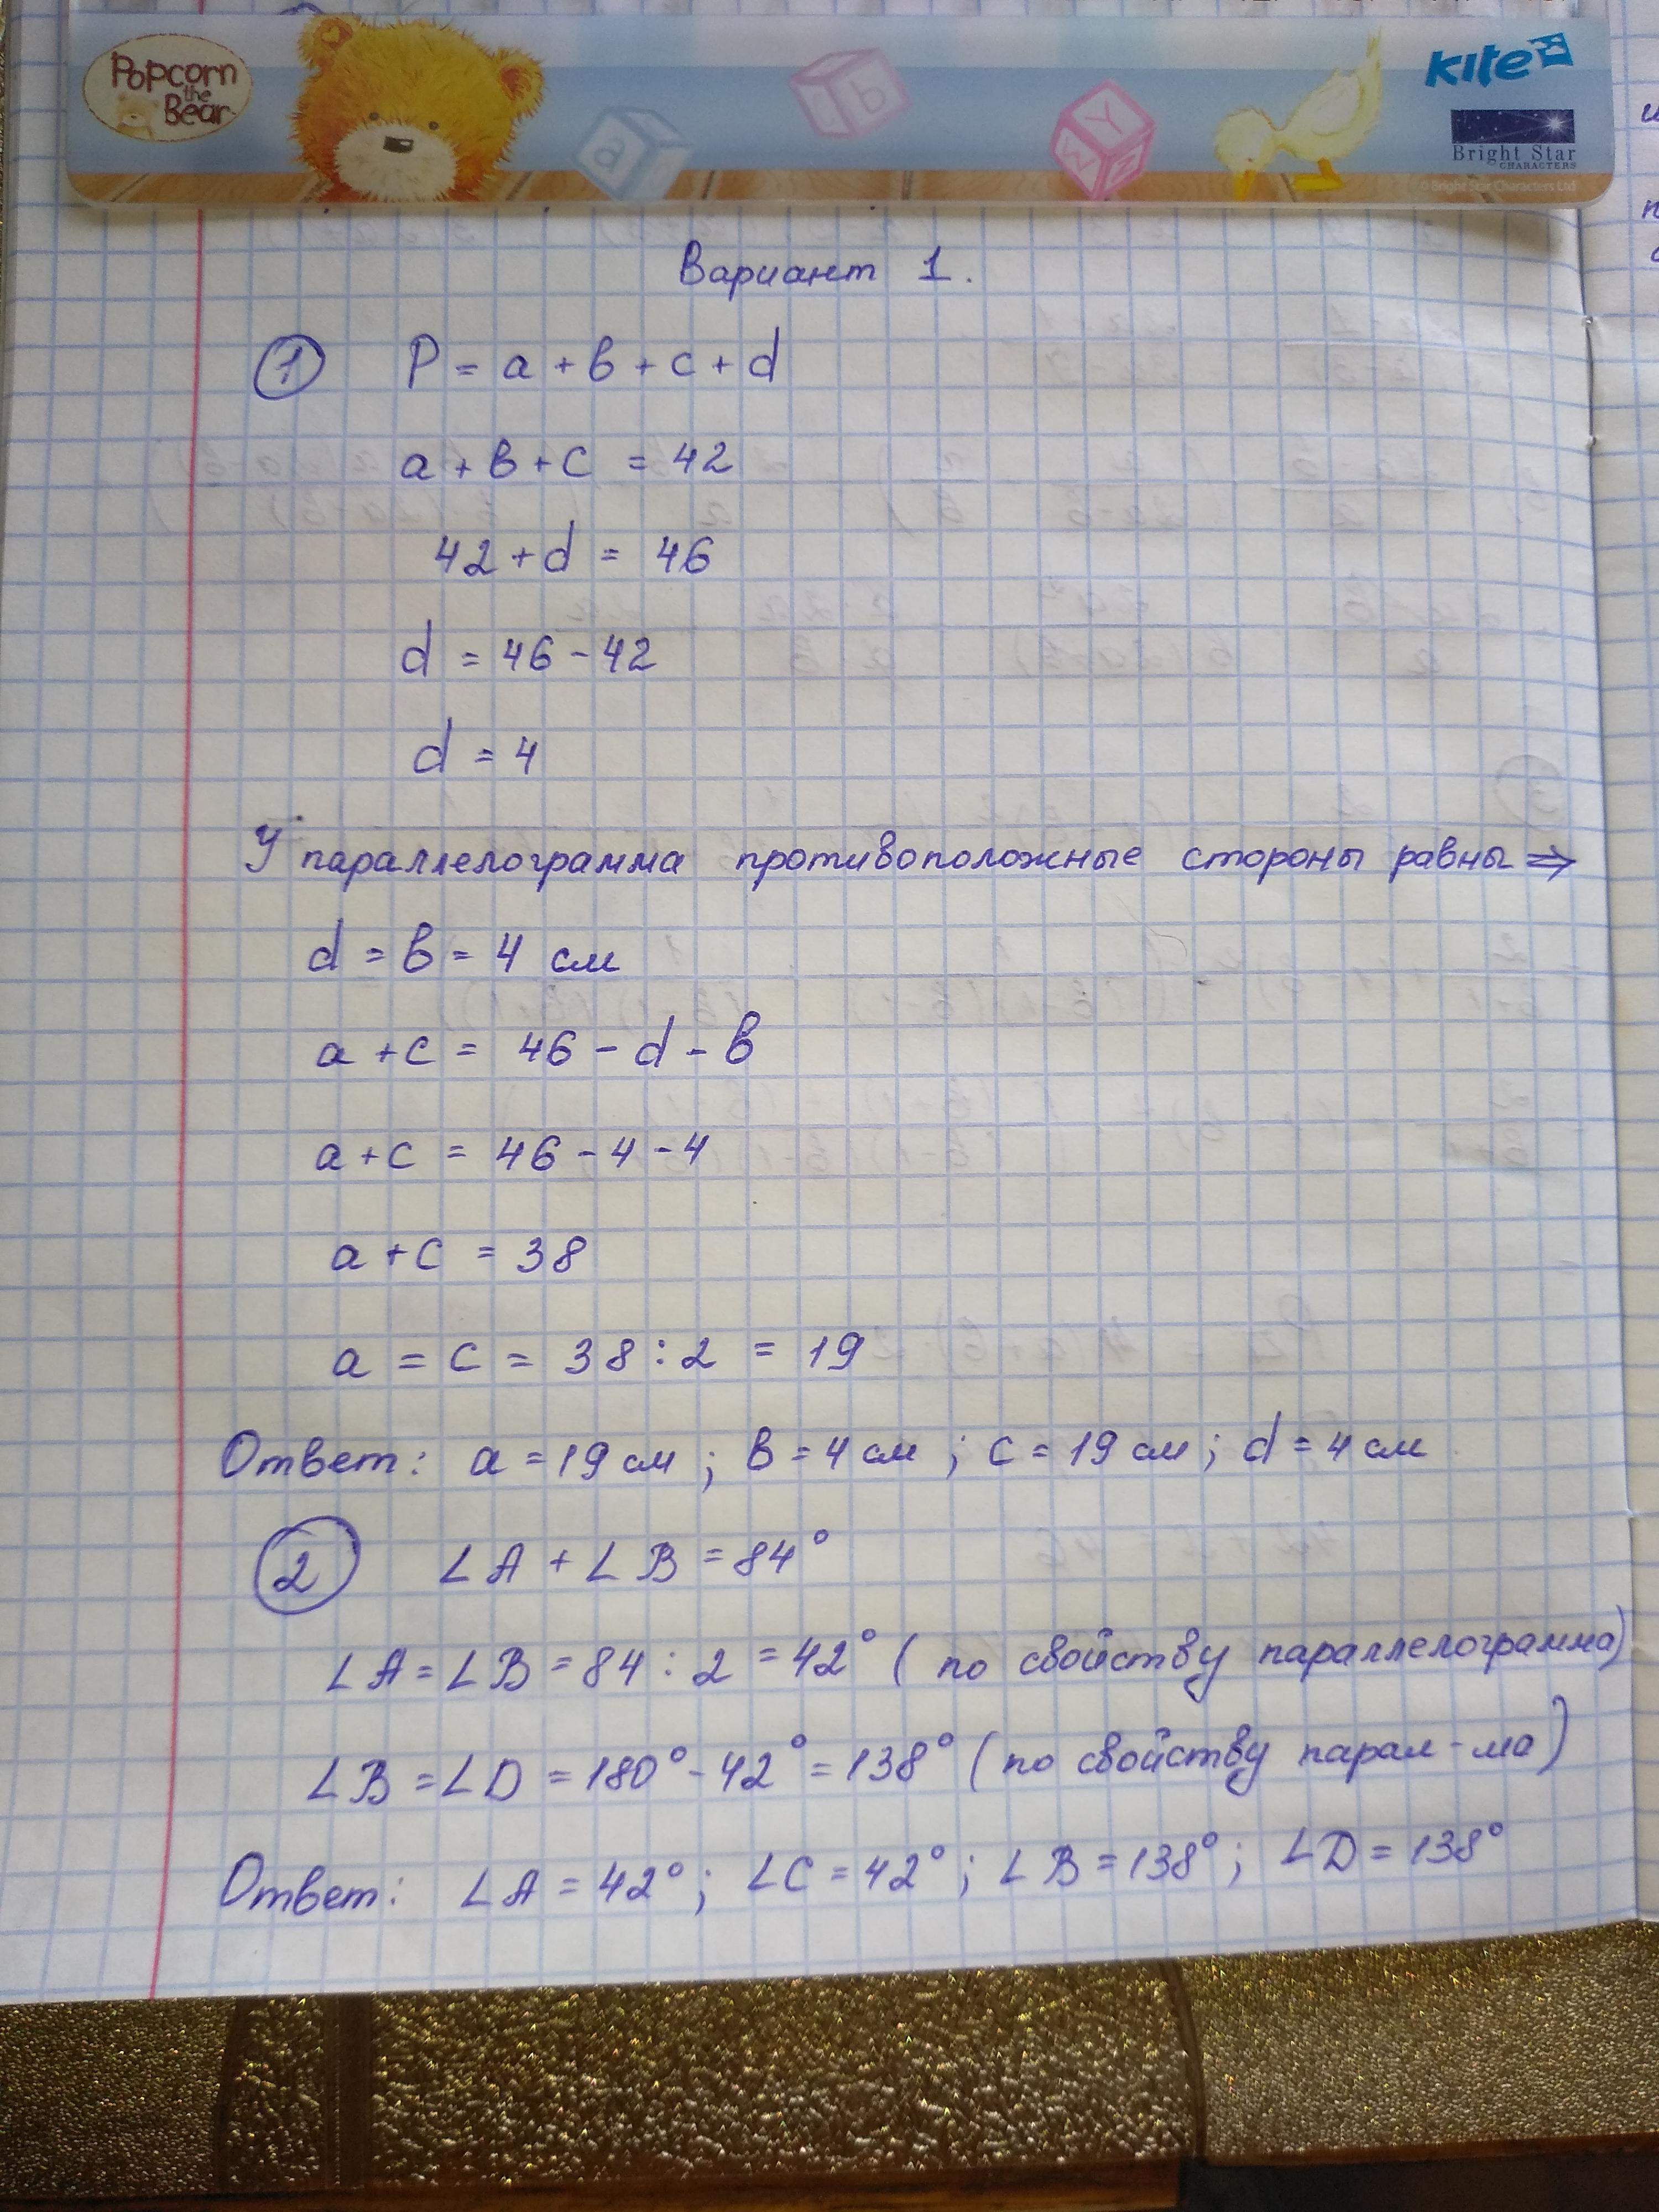 Popcorn
the
Bear
kite
Bright Star
CHARACTERS
© Bright Star Characters Ltd
Вариант 1.
1 P = a + b + c + d
a + b + c = 42
42 + d = 46
d = 46 - 42
d = 4
У параллелограмма противоположные стороны равны ⇒
d = b = 4 см
a + c = 46 - d - b
a + c = 46 - 4 - 4
a + c = 38
a = c = 38 : 2 = 19
Ответ: a = 19 см ; b = 4 см ; c = 19 см ; d = 4 см
2 ∠A + ∠B = 84°
∠A = ∠B = 84 : 2 = 42° ( по свойству параллелограмма)
∠B = ∠D = 180° - 42° = 138° ( по свойству парал-ма )
Ответ: ∠A = 42° ; ∠C = 42° ; ∠B = 138° ; ∠D = 138°